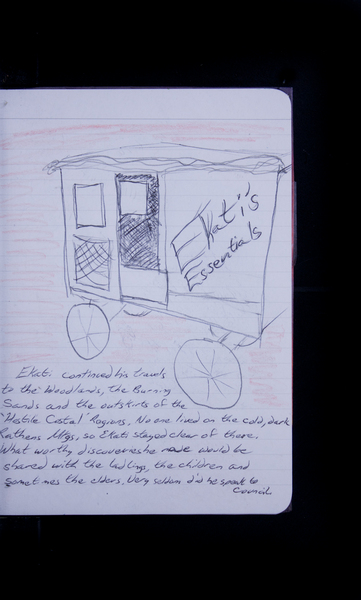 Ekati's
Essentials
Ekati continued his travels
to the Woodlands, the Burning
Sands and the outskirts of the
"Hostile Costal" Regions. No one lived on the cold, dark
Rathens Mtgs, so Ekati stayed clear of there.
What worthy discoveries he made would be
shared with the ladlings, the children and
sometimes the elders. Very seldom did he speak to
Council.